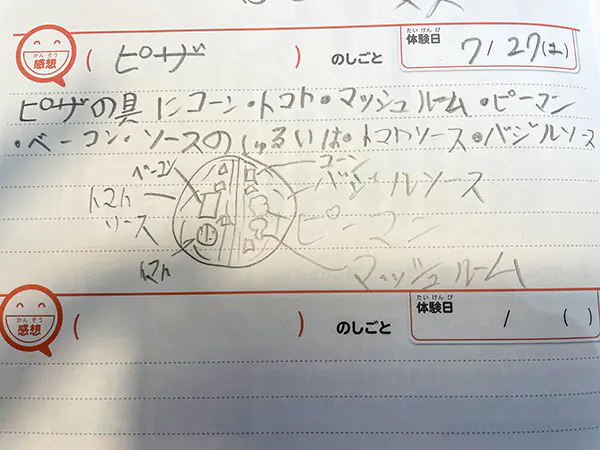 かんそう
感想
( ピザ )のしごと
たいけんび
体験日
7/27(土)
ピザの具にコーン・トマト・マッシュルーム・ピーマン
・ベーコン・ソースのしゅるいは・トマトソース・バジルソース
ベーコン
コーン
トマト
ソース
バジルソース
ピーマン
トマト
マッシュルーム
かんそう
感想
( )のしごと
たいけんび
体験日
/ ( )